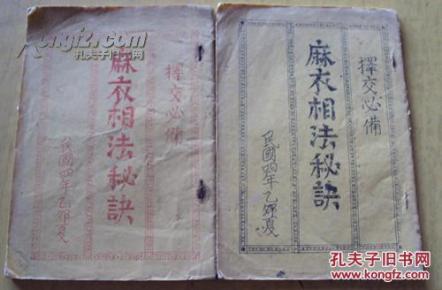 kongfz.com
孔夫子旧书网
擇交必備
麻衣相法秘訣
民國四年乙卯夏
擇交必備
麻衣相法秘訣
民國四年乙卯夏
孔夫子旧书网
www.kongfz.com